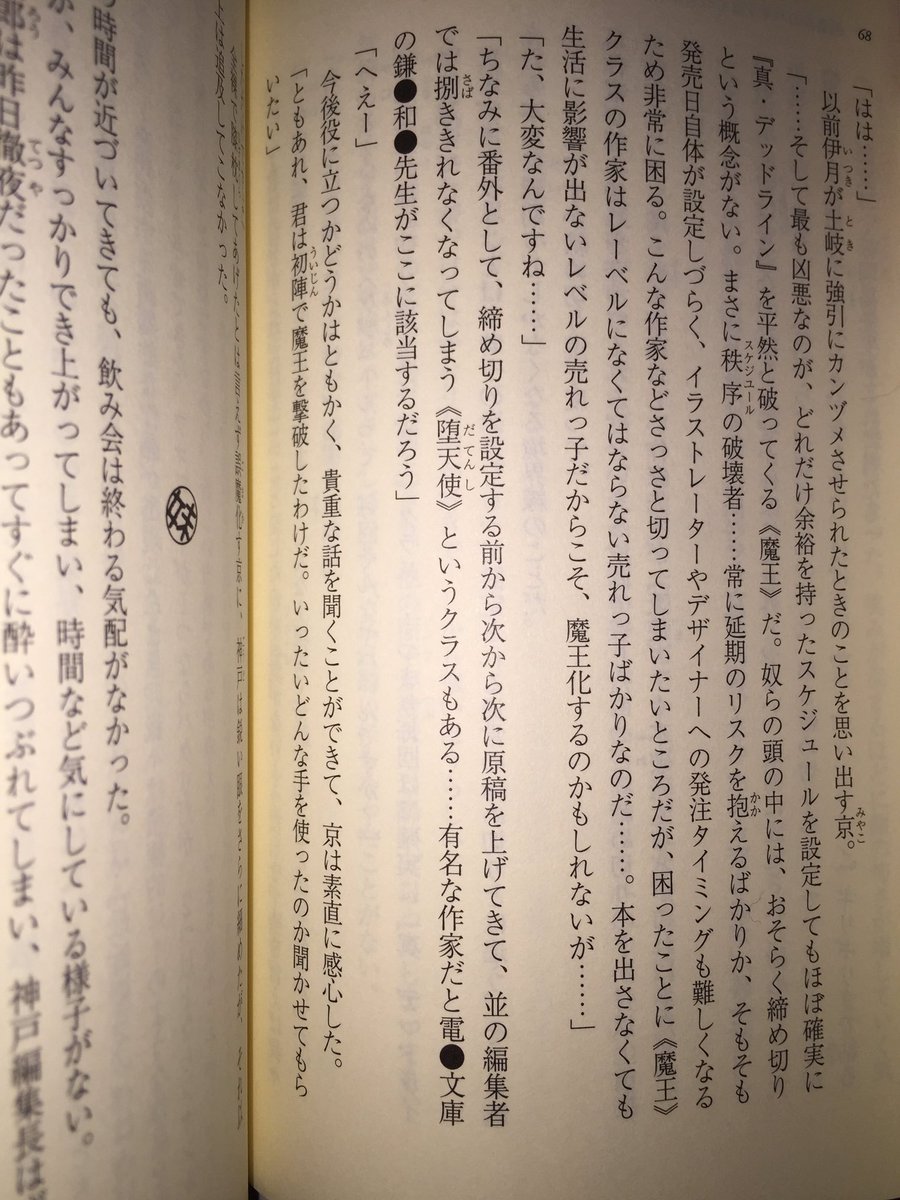 68
「はは……」
以前伊月が土岐に強引にカンヅメさせられたときのことを思い出す京。
「……そして最も凶悪なのが、どれだけ余裕を持ったスケジュールを設定してもほぼ確実に
『真・デッドライン』を平然と破ってくる《魔王》だ。奴らの頭の中には、おそらく締め切り
という概念がない。まさに秩序の破壊者……常に延期のリスクを抱えるばかりか、そもそも
発売日自体が設定しづらく、イラストレーターやデザイナーへの発注タイミングも難しくなる
ため非常に困る。こんな作家などさっさと切ってしまいたいところだが、困ったことに《魔王》
クラスの作家はレーベルになくてはならない売れっ子ばかりなのだ……。本を出さなくても
生活に影響が出ないレベルの売れっ子だからこそ、魔王化するのかもしれないが……」
「た、大変なんですね……」
「ちなみに番外として、締め切りを設定する前から次から次に原稿を上げてきて、並の編集者
では捌ききれなくなってしまう《堕天使》というクラスもある……有名な作家だと電●文庫
の鎌●和●先生がここに該当するだろう」
「へえー」
今後役に立つかどうかはともかく、貴重な話を聞くことができて、京は素直に感心した。
「ともあれ、君は初陣で魔王を撃破したわけだ。いったいどんな手を使ったのか聞かせてもら
いたい」
とは言えず誤魔化す京に、神戸は鋭い眼をさらに細めたが、それ以
上は追及してこなかった。
時間が近づいてきても、飲み会は終わる気配がなかった。
みんなすっかりでき上がってしまい、時間など気にしている様子がない。
は昨日徹夜だったこともあってすぐに酔いつぶれてしまい、神戸編集長は